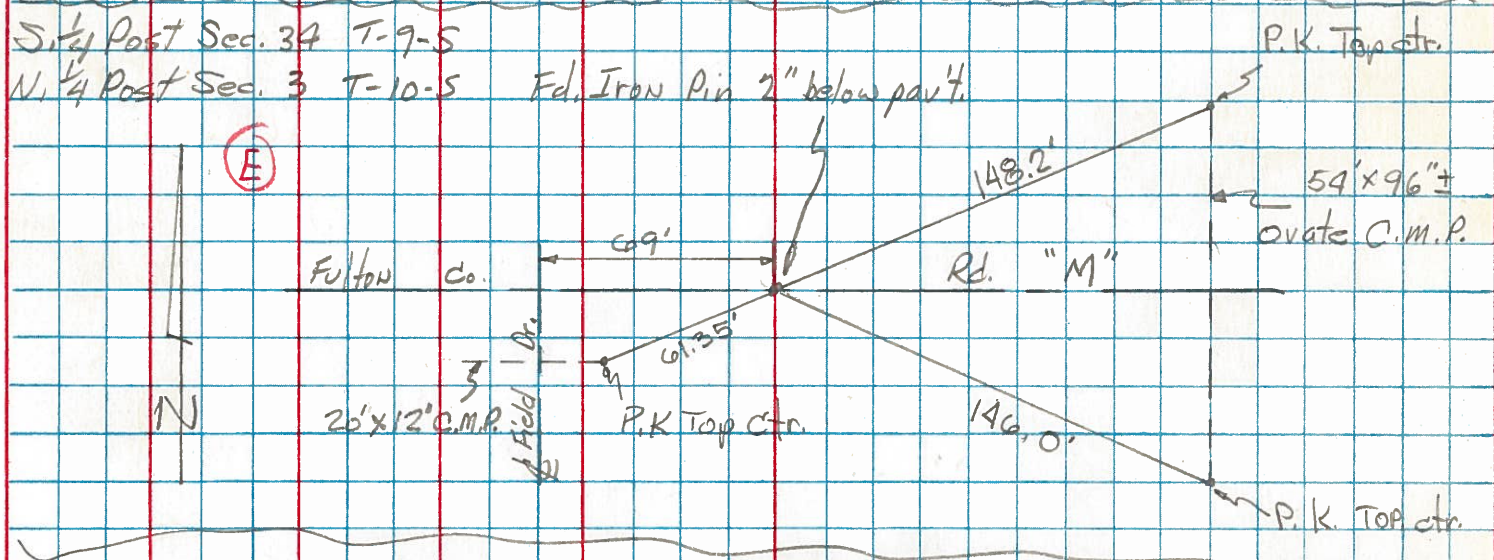 S. 1/4 Post Sec. 34 T-9-S
N. 1/4 Post Sec. 3 T-10-S Fd. Iron Pin 2" below pav't.
P.K. Top ctr.
E
148.2'
54'x96"±
ovate C.M.P.
69'
Fulton Co. Rd. "M"
61.35'
Field Dr.
20'x12" C.M.P.
P.K Top Ctr.
N
146.0'
P.K. Top ctr.